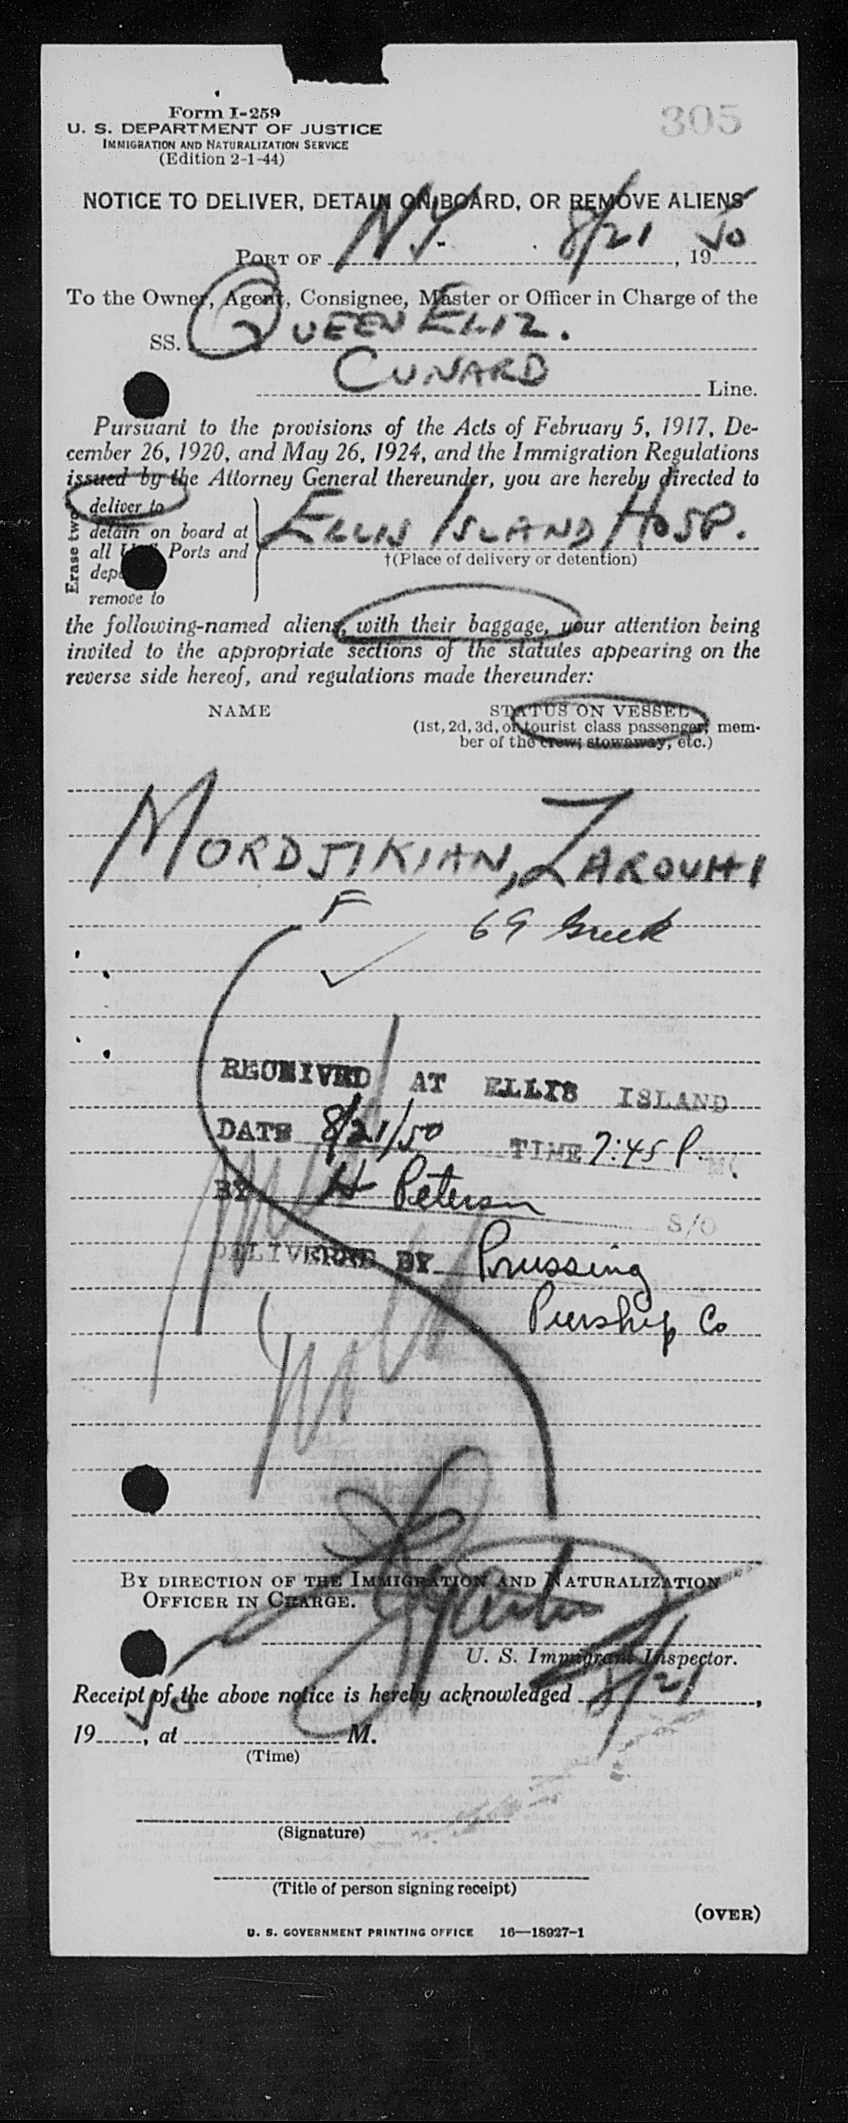 305
Form I-259
U. S. DEPARTMENT OF JUSTICE
IMMIGRATION AND NATURALIZATION SERVICE
(Edition 2-1-44)
NOTICE TO DELIVER, DETAIN ON BOARD, OR REMOVE ALIENS
PORT OF NY. 8/21, 1950
To the Owner, Agent, Consignee, Master or Officer in Charge of the
SS. QUEEN ELIZ.
CUNARD Line.
Pursuant to the provisions of the Acts of February 5, 1917, De-
cember 26, 1920, and May 26, 1924, and the Immigration Regulations
issued by the Attorney General thereunder, you are hereby directed to
Erase two
deliver to
detain on board at
all U. S. Ports and
ELLIS ISLAND HOSP.
†(Place of delivery or detention)
remove to
the following-named aliens, with their baggage, your attention being
invited to the appropriate sections of the statutes appearing on the
reverse side hereof, and regulations made thereunder:
NAME STATUS ON VESSEL
(1st, 2d, 3d, or tourist class passenger, mem-
ber of the crew; stowaway, etc.)
MORDJIKIAN, ZAROUHI
F 69 Greek
RECEIVED AT ELLIS ISLAND
DATE 8/21/50 TIME 7:45 P. M.
BY H Peterson S/O
DELIVERED BY Prussing
Piership Co
BY DIRECTION OF THE IMMIGRATION AND NATURALIZATION
OFFICER IN CHARGE.
U. S. Immigrant Inspector.
Receipt of the above notice is hereby acknowledged 8/21,
1950, at M.
(Time)
(Signature)
(Title of person signing receipt)
(OVER)
U. S. GOVERNMENT PRINTING OFFICE 16—18927-1